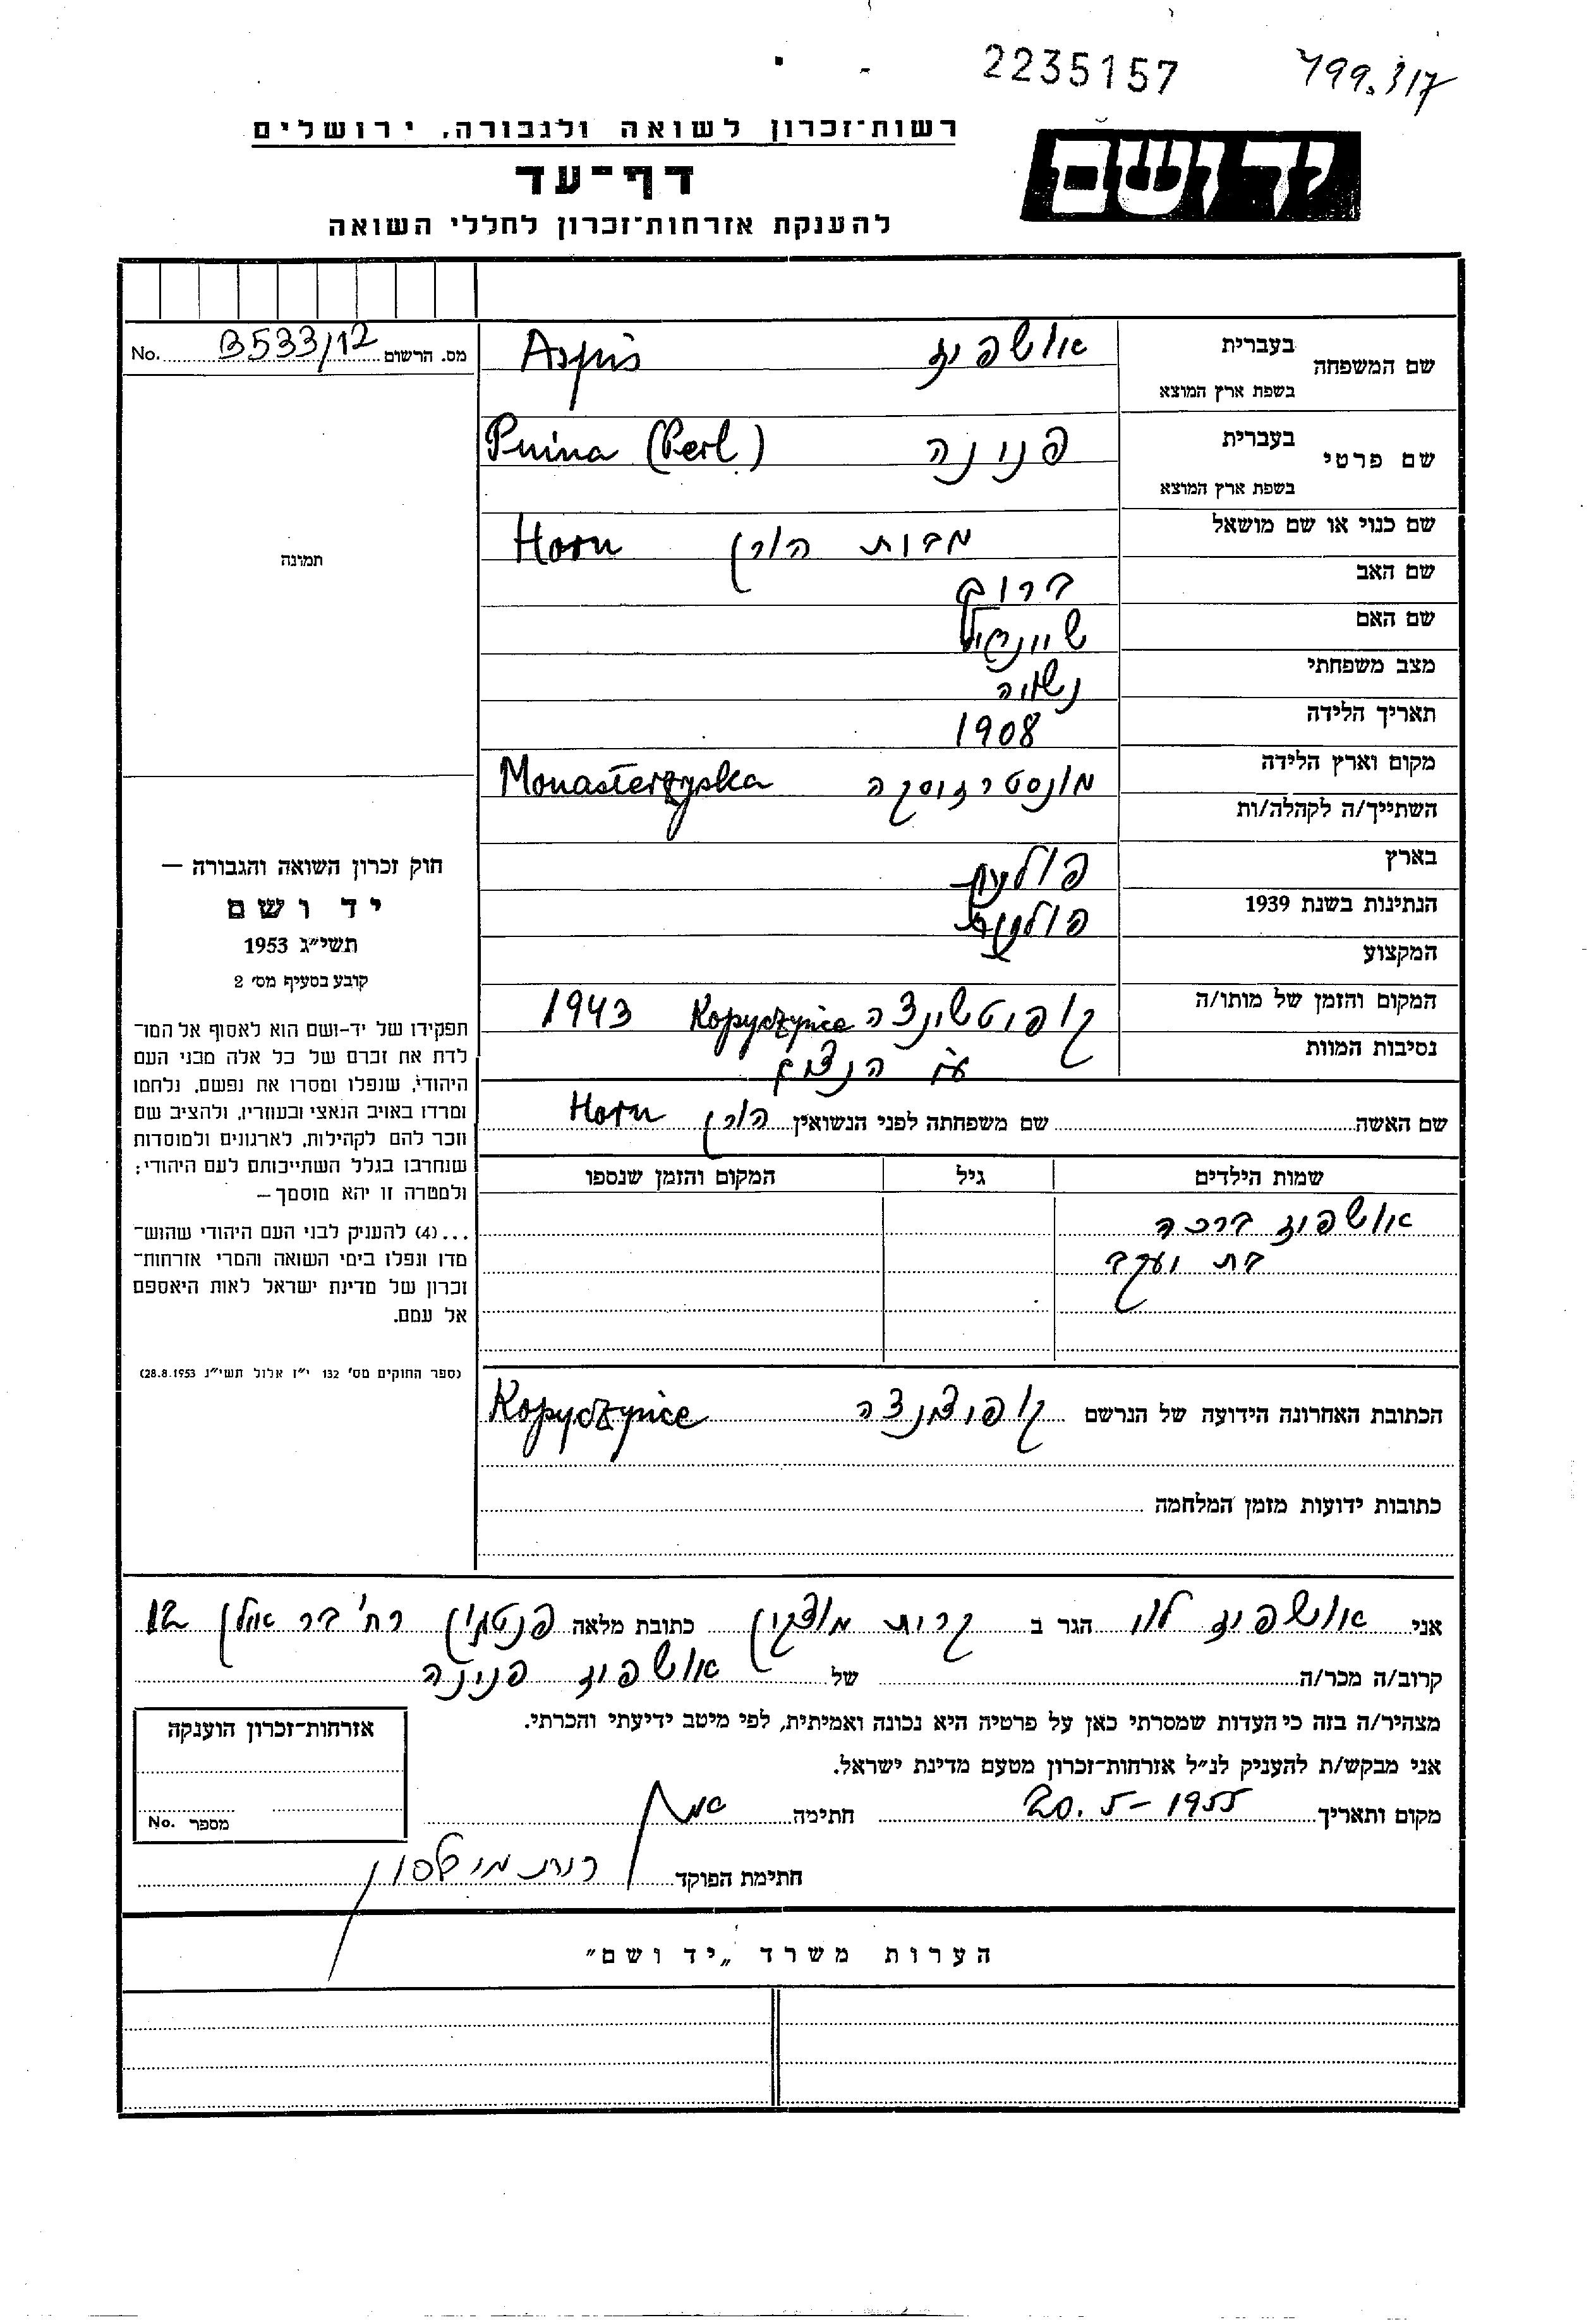 2235157 799.317
ידושם
רשות־זכרון לשואה ולגבורה, ירושלים
דף־עד
להענקת אזרחות־זכרון לחללי השואה
מס. הרשום B533/12 No.
שם המשפחה בעברית אושפיז Aspis
בשפת ארץ המוצא
שם פרטי בעברית פנינה Pnina (Perl)
בשפת ארץ המוצא
שם כנוי או שם מושאל מבית הורן Horn
שם האב ברוך
שם האם שיינדיל
מצב משפחתי נשואה
תאריך הלידה 1908
מקום וארץ הלידה מונסטרזיסקה Monasterzyska
השתייך/ה לקהלה/ות
בארץ פולין
הנתינות בשנת 1939
המקצוע
המקום והזמן של מותו/ה קופוטשינצה Kopyczynice 1943
נסיבות המוות
שם האשה שם משפחתה לפני הנשואין הורן Horn
שמות הילדים גיל המקום והזמן שנספו
אושפיז ברכה
בת יעקב
הכתובת האחרונה הידועה של הנרשם קופוצנצה Kopyczynice
כתובות ידועות מזמן המלחמה
תמונה
חוק זכרון השואה והגבורה —
יד ושם
תשי״ג 1953
קובע בסעיף מס׳ 2
תפקידו של יד-ושם הוא לאסוף אל המו־
לדת את זכרם של כל אלה מבני העם
היהודי, שנפלו ומסרו את נפשם, נלחמו
ומרדו באויב הנאצי ובעוזריו, ולהציב שם
וזכר להם לקהילות, לארגונים ולמוסדות
שנחרבו בגלל השתייכותם לעם היהודי;
ולמטרה זו יהא מוסמך—
...(4) להעניק לבני העם היהודי שהוש־
מדו ונפלו בימי השואה והמרי אזרחות־
זכרון של מדינת ישראל לאות היאספם
אל עמם.
(ספר החוקים מס׳ 132 י״ז אלול תשי״ג 28.8.1953)
אני אושפיז לוי הגר ב קרית מוצקין כתובת מלאה רח' בר אילן 12
קרוב/ה מכר/ה של אושפיז פנינה
מצהיר/ה בזה כי העדות שמסרתי כאן על פרטיה היא נכונה ואמיתית, לפי מיטב ידיעתי והכרתי.
אני מבקש/ת להעניק לנ״ל אזרחות־זכרון מטעם מדינת ישראל.
מקום ותאריך 20.5-1955 חתימה
חתימת הפוקד
אזרחות־זכרון הוענקה
מספר No.
הערות משרד „יד ושם״